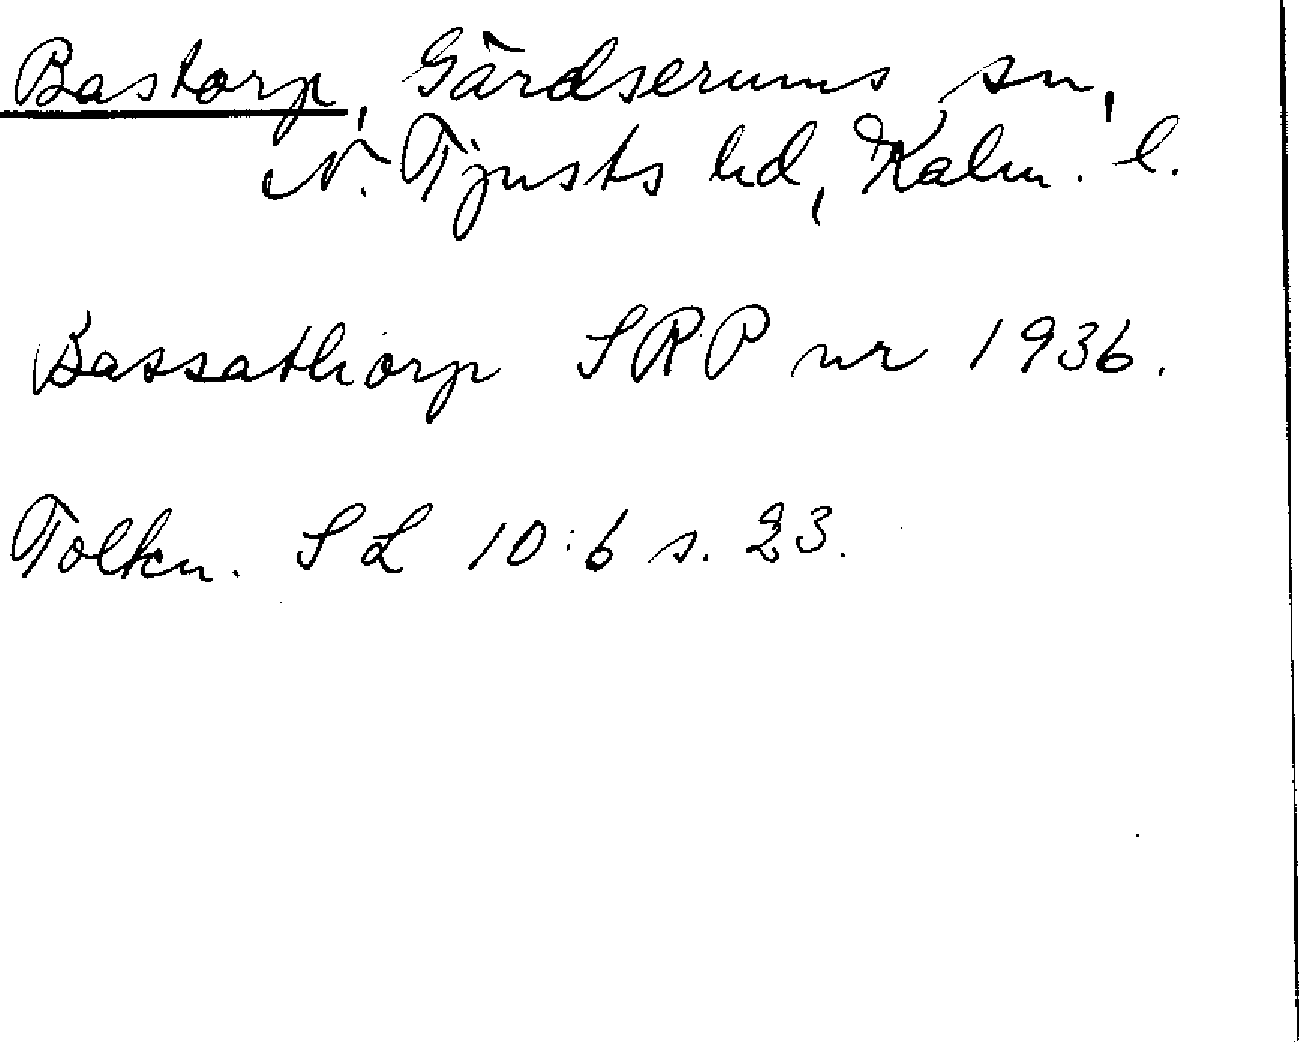 Bastorp, Gärdserums sn,
N. Tjusts hd, Kalm. l.
Bassathorp SRP nr 1936.
Tolkn. SL 10:6 s. 23.